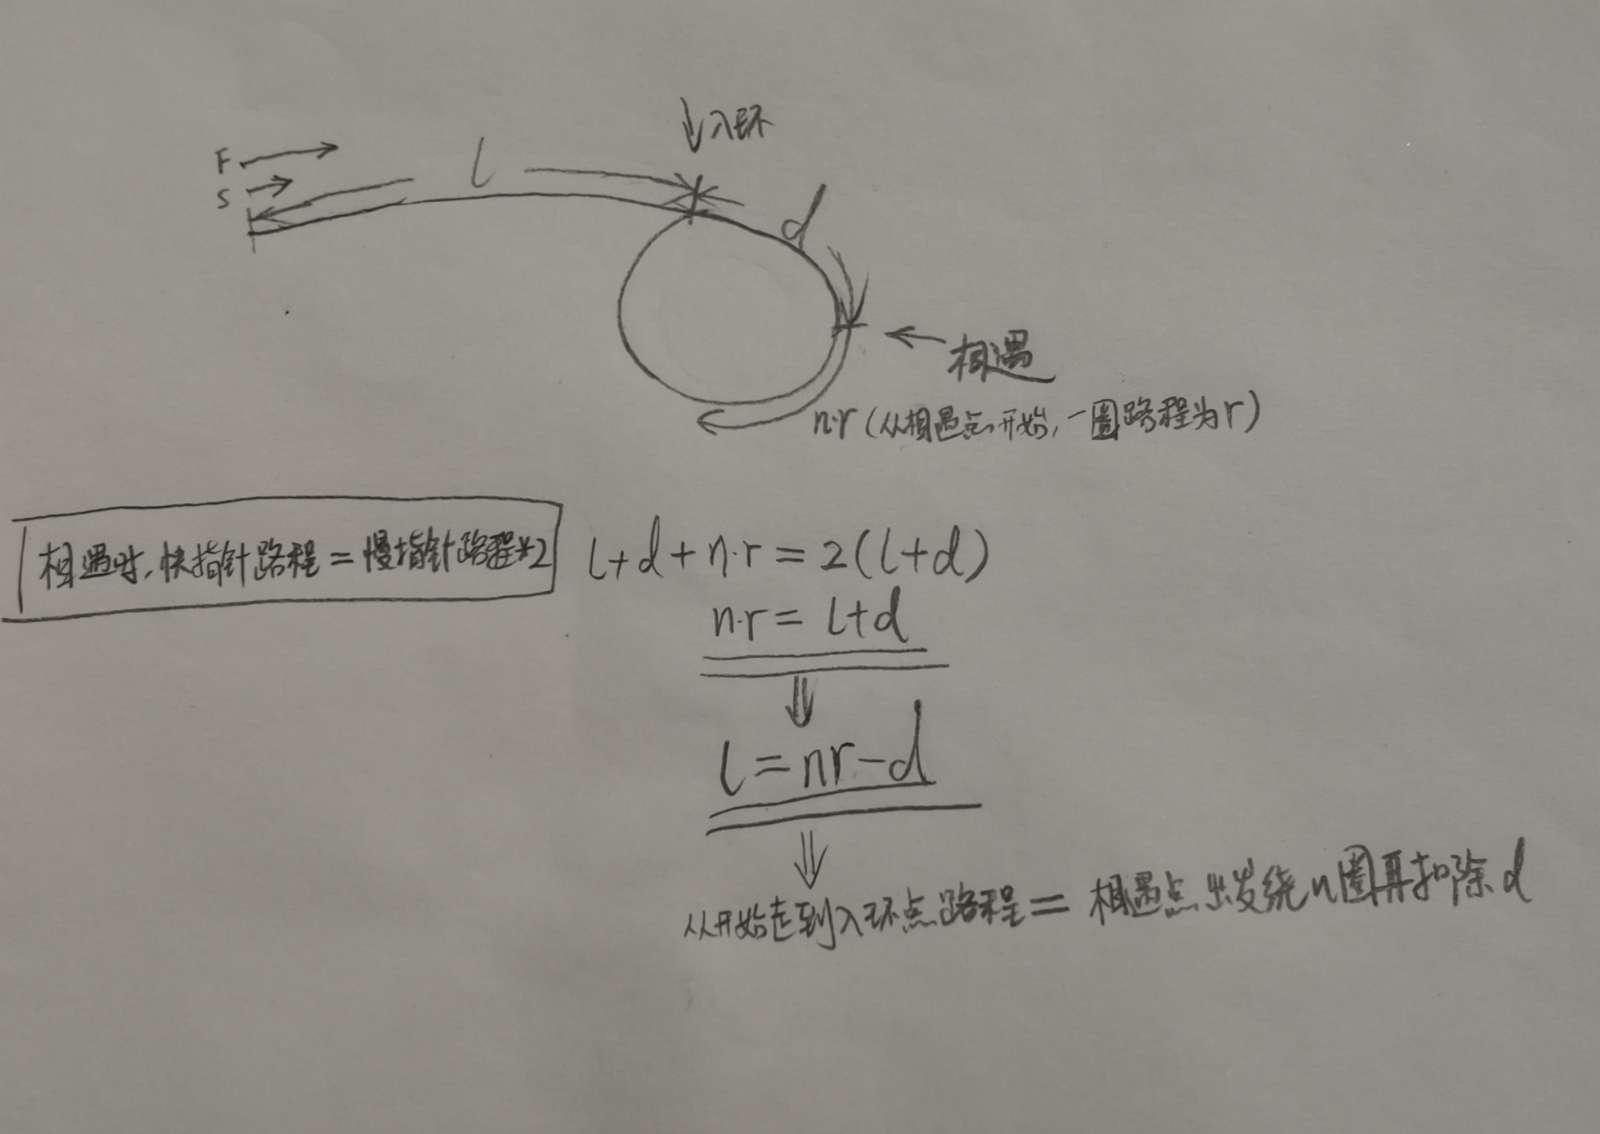 入环
F
l
S
d
相遇
n·r (从相遇点开始,一圈路程为r)
相遇时,快指针路程=慢指针路程*2
l+d+n·r=2(l+d)
n·r=l+d
l=nr-d
从开始走到入环点路程=相遇点出发绕n圈再扣除d